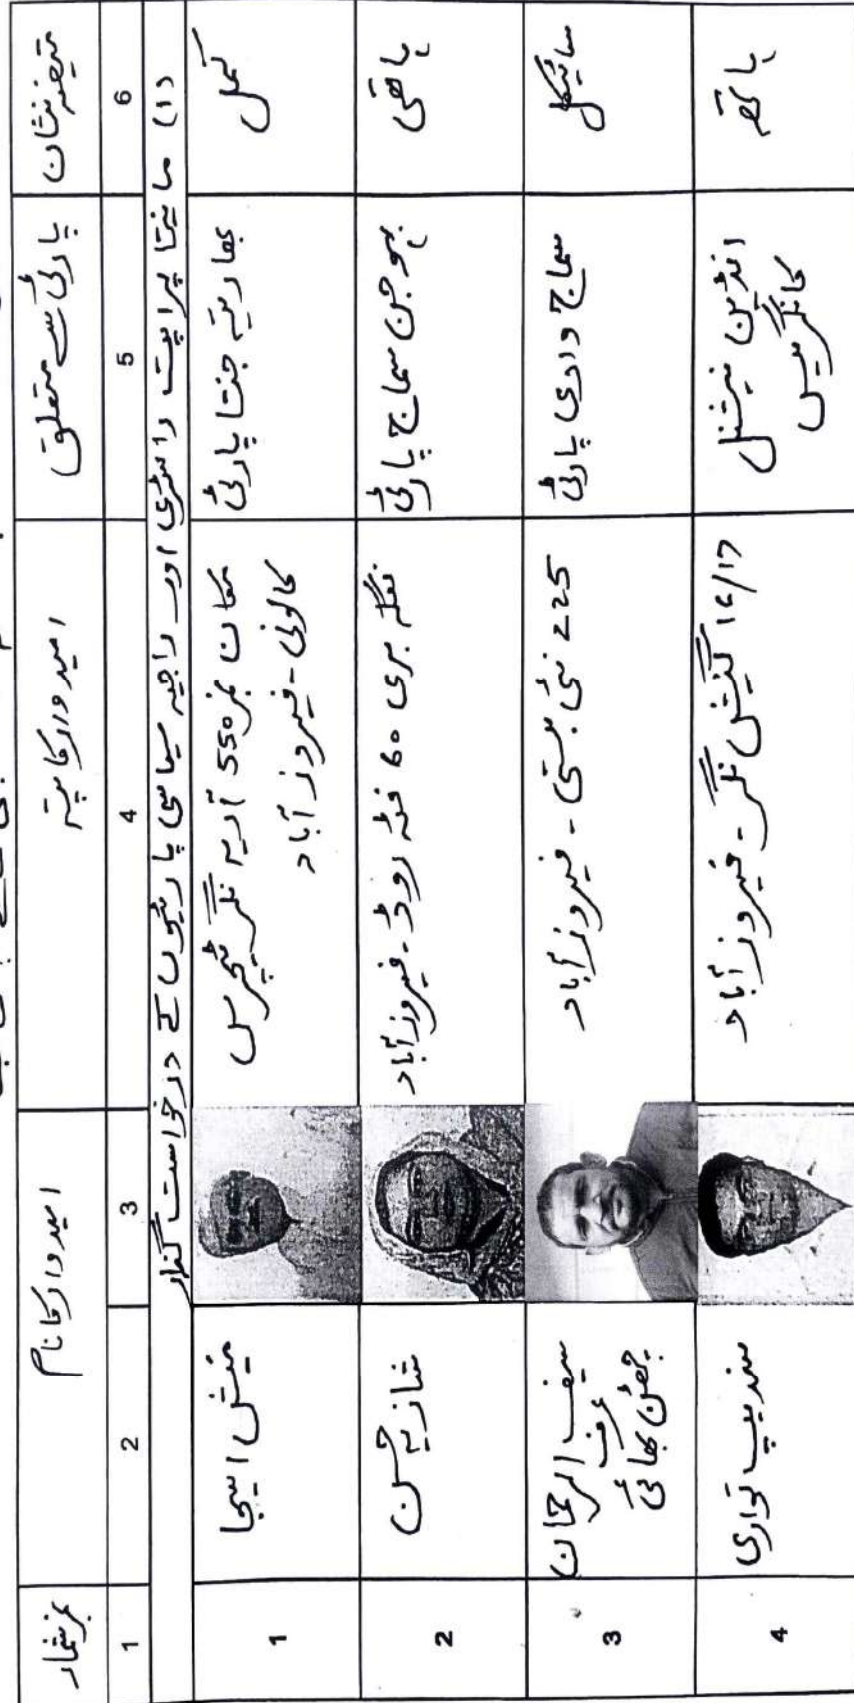 نمبر شمار
امیدوار کا نام
امیدوار کا پتہ
پارٹی سے متعلق
نشان
1 2 3 4 5 6
(1) مانیتا پراپت راشٹری اور راجیہ سیاسی پارٹیوں کے درخواست گذار
1
منیش اسیجا
مکان نمبر 550 آریہ نگر ٹیچرس
کالونی - فیروزآباد
بھارتیہ جنتا پارٹی
کمل
2
شازیہ حسن
نگلہ بری 60 فٹہ روڈ - فیروزآباد
بہوجن سماج پارٹی
ہاتھی
3
سیف الرحمان
عرف
چھٹن بھائی
225 نئی بستی - فیروزآباد
سماج وادی پارٹی
سائیکل
4
سندیپ تواری
16/17 گنیش نگر - فیروزآباد
انڈین نیشنل
کانگریس
ہاتھ